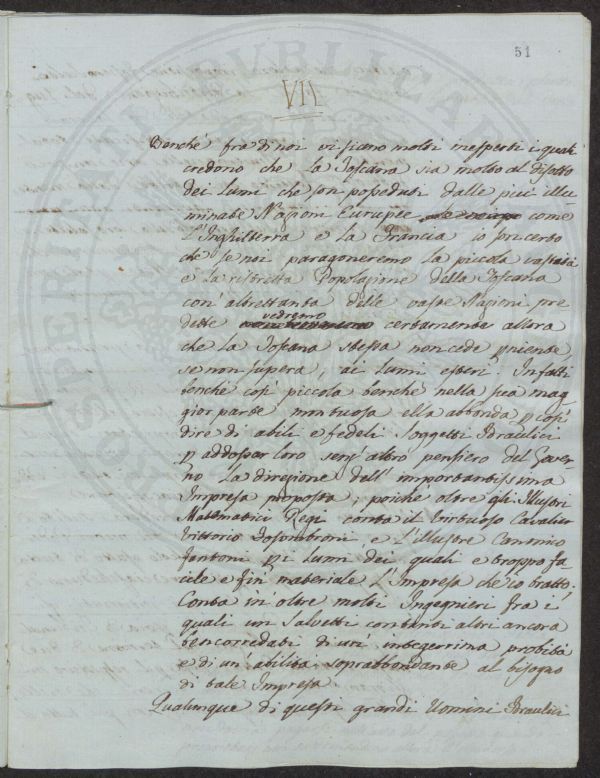 51
VII
Benché fra di noi vi siano molti inesperti i quali
credono che la Toscana sia molto al disotto
dei lumi che son posseduti dalle più illu
minate Nazioni Europee come
L'Inghilterra e la Francia io son certo
che se noi paragoneremo la piccola vastità
e la ristretta Popolazione della Toscana
con altrettanta delle vaste Nazioni pre
dette vedremo certamente allora
che la Toscana stessa non cede p niente,
se non supera, ai lumi esteri. Infatti
benché così piccola benché nella sua mag
gior parte montuosa ella abbonda p così
dire di abili e fedeli Soggetti Idraulici
p addossar loro senz'altro pensiero del Gover
no la direzione dell'importantissima
Impresa proposta; poiche oltre gli Illustri
Matematici Regi conta il Virtuoso Cavalier
Vittorio Fossombroni e l'Illustre Canonico
Fantoni p i lumi dei quali e troppo fa
cile e fin materiale L'Impresa che io tratto.
Conta in oltre molti Ingegneri fra i
quali un Salvetti con tanti altri ancora
ben corredati di un'integerrima probità
e di un'abilità soprabbondante al bisogno
di tale Impresa.
Qualunque di questi grandi Uomini Idraulici